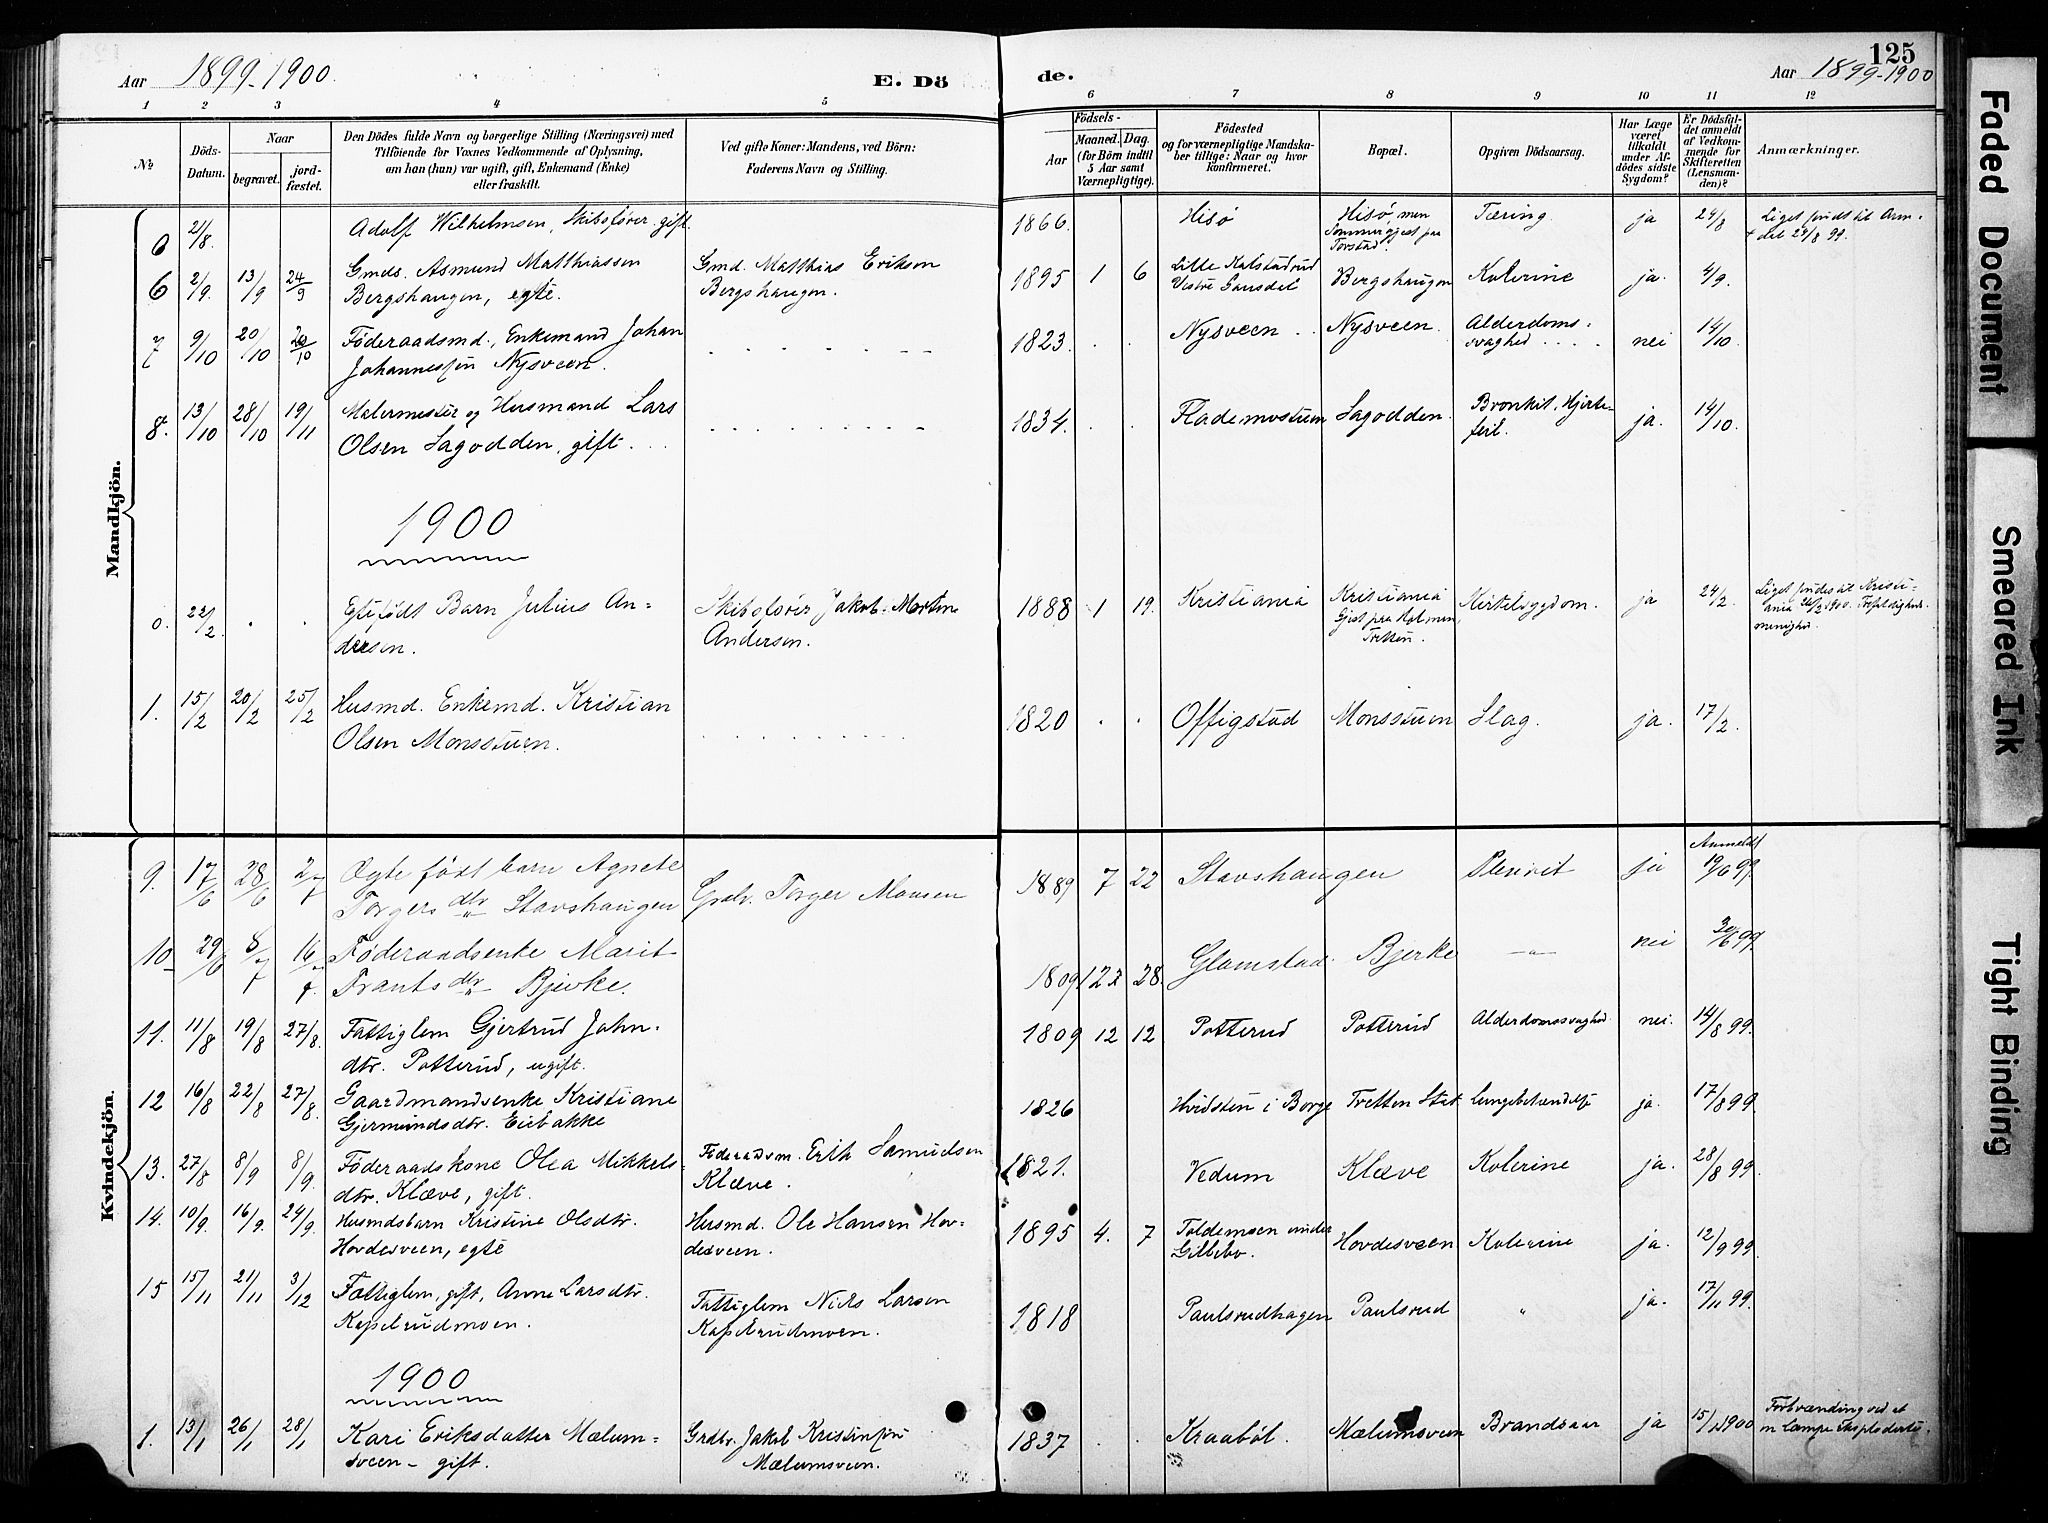 125
Aar 1899-1900. E. Dö de. Aar 1899-1900
1 2 3 4 5 6 7 8 9 10 11 12
No
Döds-Datum.
Naar
begravet.
jord-fæstet.
Den Dödes fulde Navn og borgerlige Stilling (Næringsvei) med
Tilföiende for Voxnes Vedkommende af Oplysning,
om han (hun) var ugift, gift, Enkemand (Enke)
eller fraskilt.
Ved gifte Koner: Mandens, ved Börn:
Faderens Navn og Stilling.
Födsels-
Aar
Maaned. Dag.
(for Börn indtil
5 Aar samt
Værnepligtige).
Födested
og for værnepligtige Mandska-
ber tillige: Naar og hvor
konfirmeret.
Bopæl.
Opgiven Dödsaarsag.
Har Læge
været
tilkaldt
under Af-
dödes sidste
Sygdom?
Er Dödsfal-
det anmeldt
af Vedkom-
mende for
Skifteretten
(Lensman-
den)?
Anmærkninger.
Mandkjön.
0 21/8. Adolf Wilhelmsen, Skibsfører. gift. 1866. Hisø Hisø, men Sommergjest paa Torstad. Tæring. ja 24/8 Liget sendt til Aren-
dal 24/8 99.
6 2/9. 13/9 24/9 Gmds. Asmund Matthiassen
Bergshaugen, egte. Gmd. Matthias Erikson
Bergshaugen. 1895 1 6 Lille Kalstadrud
Vestre Gausdal Bergshaugen Kolerine ja. 4/9.
7 9/10 20/10 20/10 Føderaadsmd., Enkemand Johan
Johannessøn Nysveen. 1823. Nysveen Nysveen. Alderdoms-
svaghed nei 14/10.
8. 13/10 28/10 19/11 Malermester og Husmand Lars
Olsen Sagodden, gift. 1834. Flademostuen Sagodden. Bronkit, Hjerte-
feil. ja. 14/10.
1900
0. 22/2. Egtefødt Barn Julius An-
dersen. Skibsfører Jakob Martin
Andersen. 1888 1 19. Kristiania Kristiania
Gjest paa
Tretten. Kirtelsygdom. ja 24/2. Liget sendes til Kristi-
ania 26/2 1900.
menighed.
1. 15/2 20/2 25/2 Husmd. Enkemd. Kristian
Olsen Monsstuen. 1820 Offigstad Monsstuen Slag. ja. 17/2.
Kvindekjön.
Anmeldt
9. 17/6 28/6 2/7 Ægte født barn Agnete
Torgersdtr Stavshaugen Torger Monsen 1889 7 22 Stavshaugen Plevrit ja 19/6 99
10 29/6 8/7 16/7. Føderaadsenke Marit
Frantsdtr Bjerke. 1809 12 28. Glomstad Bjerke — " — nei 30/6 99
11. 11/8 19/8 27/8. Fattiglem Gjertrud John-
dtr. Potterud, ugift. 1809 12 12 Potterud Potterud Alderdomssvaghed nei. 14/8 99.
12 16/8 22/8 27/8. Gaardmandsenke Kristiane
Gjermundsdtr. Eiebakke 1826 Hvidsten i Borge Tretten Stat. Lungebetændelse ja. 17/8 99.
13. 27/8 8/9 8/9. Føderaadskone Olea Mikkels-
dtr. Klæve, gift. Føderaadsm. Erik Samuelsen
Klæve. 1821. Vedum Klæve Kolerine ja. 28/8 99.
14. 10/9. 16/9. 24/9 Husmdsbarn Kristine Olsdtr.
Hovdesveen, egte Husmd. Ole Hansen Hov-
desveen. 1895 4. 7 Toldemoen under
Gillebo. Hovdesveen Kolerine ja. 12/9 99
15 15/11 21/11 3/12 Fattiglem, gift, Anne Larsdtr.
Kapelrudmoen. Fattiglem Niels Larsen
Kapelrudmoen. 1818 Paulsrudhagen Paulsrud " ja. 17/11 99.
1900
1. 13/1 26/1 28/1 Kari Eriksdatter Mælum-
sveen - gift. Grdbr. Jakob Kristiansøn
Mælumsveen. 1837 Kraabøl. Mælumsveen Brandsaar ja 15/1 1900 Forbrænding ved at
en Lampe Eksploderte.
Faded Document
Smeared Ink
Tight Binding